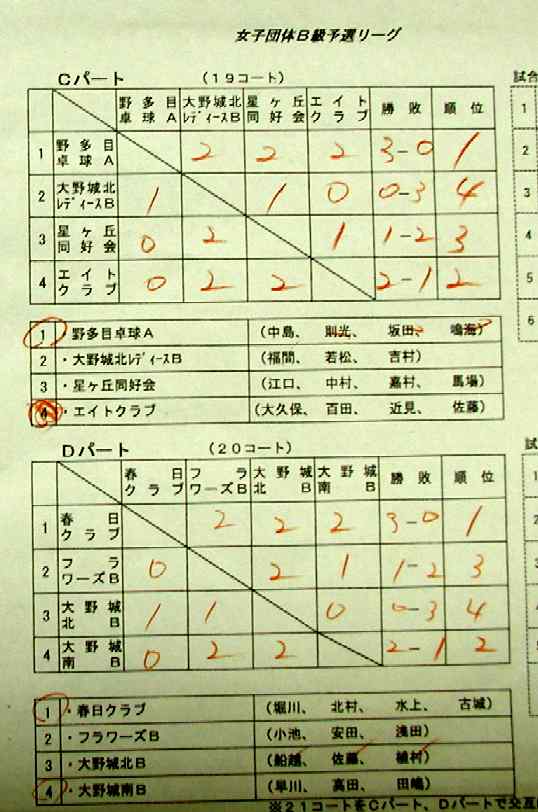 女子団体B級予選リーグ
Cパート (19コート)
試合
野多目卓球A 大野城北ﾚﾃﾞｨｰｽB 星ヶ丘同好会 エイトクラブ 勝敗 順位
1 野多目卓球A 2 2 2 3-0 1
2 大野城北ﾚﾃﾞｨｰｽB 1 1 0 0-3 4
3 星ヶ丘同好会 0 2 1 1-2 3
4 エイトクラブ 0 2 2 2-1 2
1
2
3
4
5
6
1 ・野多目卓球A (中島、 則光、 坂田、 鳴海)
2 ・大野城北ﾚﾃﾞｨｰｽB (福間、 若松、 吉村)
3 ・星ヶ丘同好会 (江口、 中村、 嘉村、 馬場)
4 ・エイトクラブ (大久保、 百田、 近見、 佐藤)
Dパート (20コート)
春日クラブ フラワーズB 大野城北B 大野城南B 勝敗 順位
1 春日クラブ 2 2 2 3-0 1
2 フラワーズB 0 2 1 1-2 3
3 大野城北B 1 1 0 0-3 4
4 大野城南B 0 2 2 2-1 2
1 ・春日クラブ (堀川、 北村、 水上、 古城)
2 ・フラワーズB (小池、 安田、 浅田)
3 ・大野城北B (船越、 佐藤、 植村)
4 ・大野城南B (早川、 高田、 田嶋)
※21コートをCパート、Dパートで交互